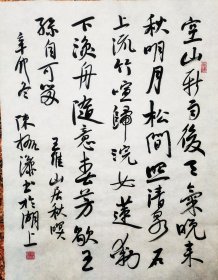 空山新雨後天氣晚來
秋明月松間照清泉石
上流竹喧歸浣女蓮動
下漁舟隨意春芳歇王
孫自可留 王維山居秋暝
辛卯冬 陳振濂书於湖上